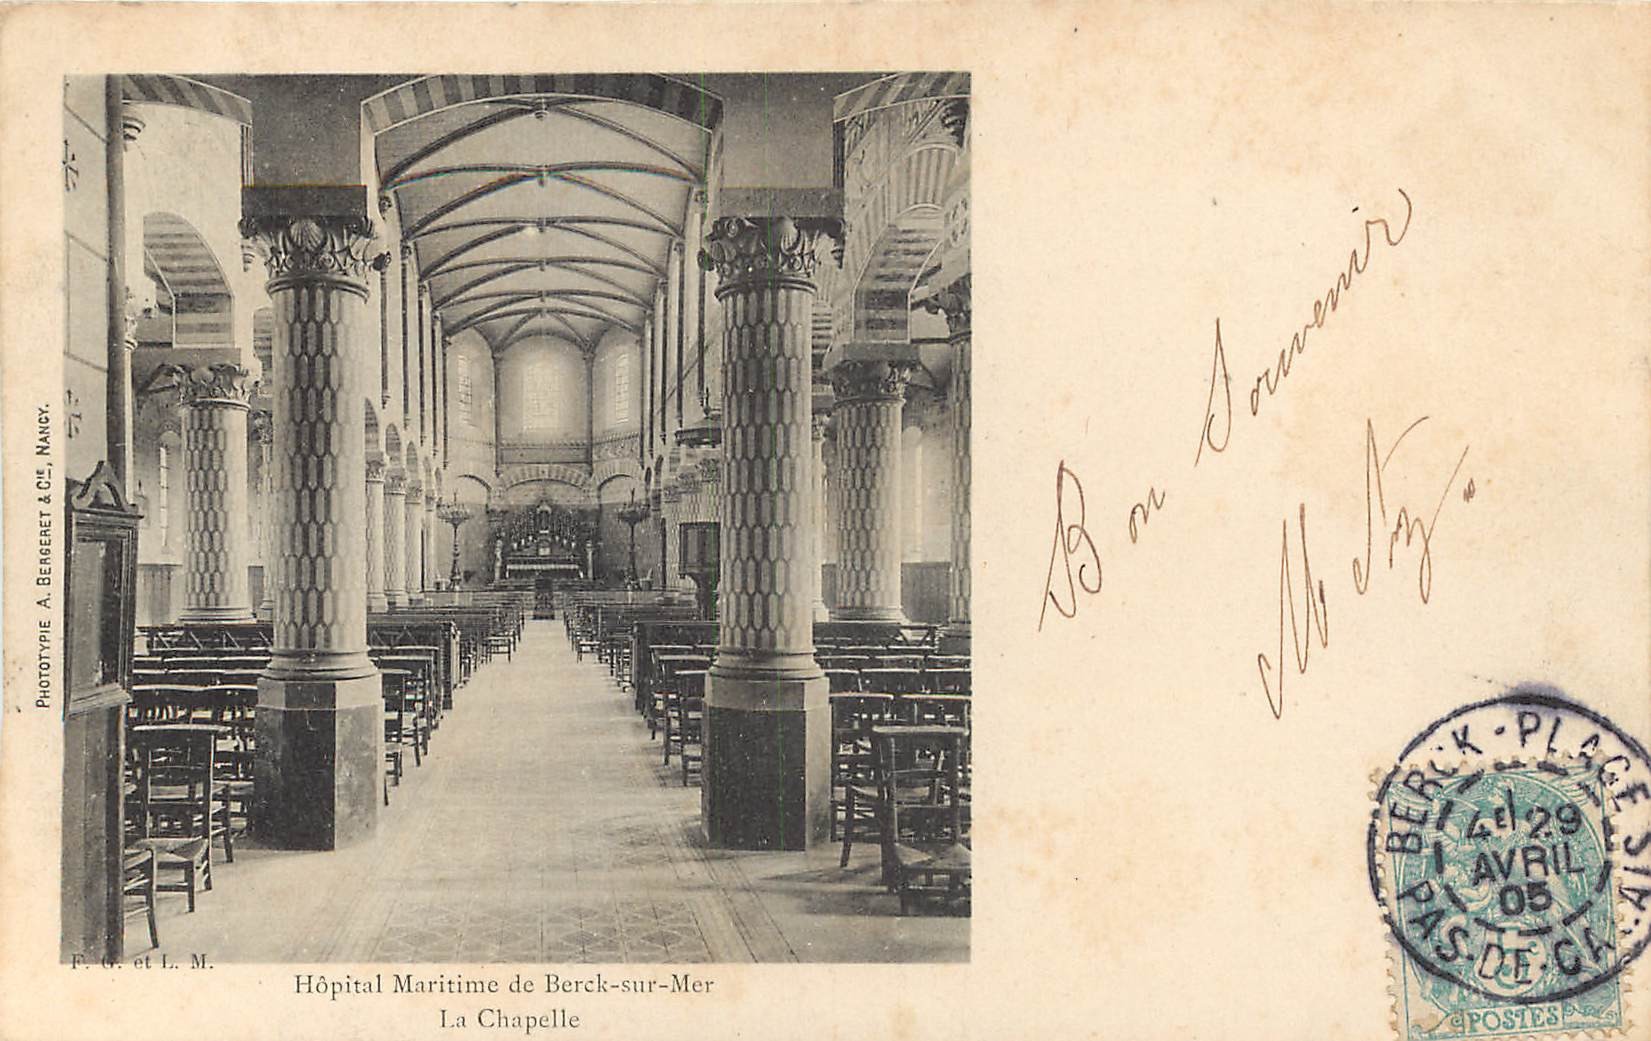 PHOTOTYPIE A. BERGERET & CIE, NANCY.
F. G. et L. M.
Hôpital Maritime de Berck-sur-Mer
La Chapelle
Bon Souvenir
BERCK-PLAGE
4E 29
AVRIL
05
PAS-DE-CALAIS
POSTES